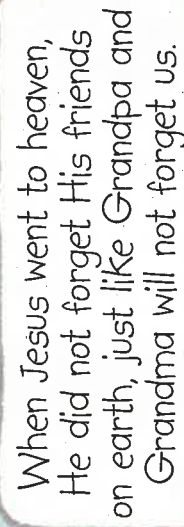 When Jesus went to heaven,
He did not forget His friends
on earth, just like Grandpa and
Grandma will not forget us.